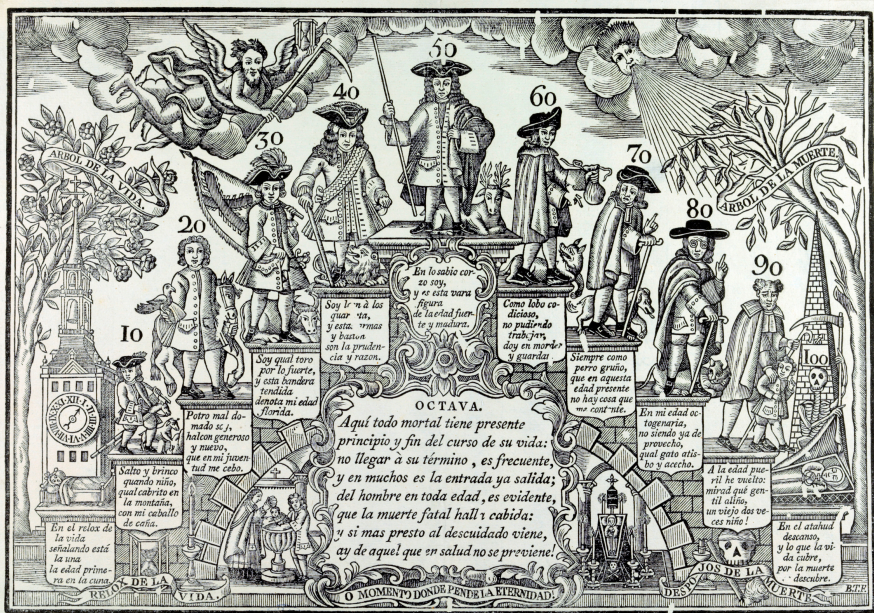 ARBOL DE LA VIDA.
10
20
30
40
50
60
70
80
90
100
ARBOL DE LA MUERTE.
En el relox de
la vida
señalando está
la una
la edad prime-
ra en la cuna.
Salto y brinco
quando niño,
qual cabrito en
la montaña,
con mi caballo
de caña.
Potro mal do-
mado soy,
halcon generoso
y nuevo,
que en mi juven-
tud me cebo.
Soy qual toro
por lo fuerte,
y esta bandera
tendida
denota mi edad
florida.
Soy à los
y esta
y baston
son la pruden-
cia y razon.
En lo sabio cor-
zo soy,
y es esta vara
figura
de la edad fuer-
te y madura.
Como lobo co-
dicioso,
no pudiendo
trabajar,
doy en morder
y guardar.
Siempre como
perro gruño,
que en aquesta
edad presente
no hay cosa que
me contente.
En mi edad oc-
togenaria,
no siendo ya de
provecho,
qual gato atis-
bo y acecho.
A la edad pue-
ril he vuelto:
mirad qué gen-
til aliño,
un viejo dos ve-
ces niño!
En el atahud
descanso,
y lo que la vi-
da cubre,
por la muerte
descubre.
OCTAVA.
Aquí todo mortal tiene presente
principio y fin del curso de su vida:
no llegar à su término, es frecuente,
y en muchos es la entrada ya salida;
del hombre en toda edad, es evidente,
que la muerte fatal halla cabida:
y si mas presto al descuidado viene,
ay de aquel que en salud no se previene!
RELOX DE LA VIDA.
O MOMENTO DONDE PENDE LA ETERNIDAD!
DESPOJOS DE LA MUERTE.
B.T.F.